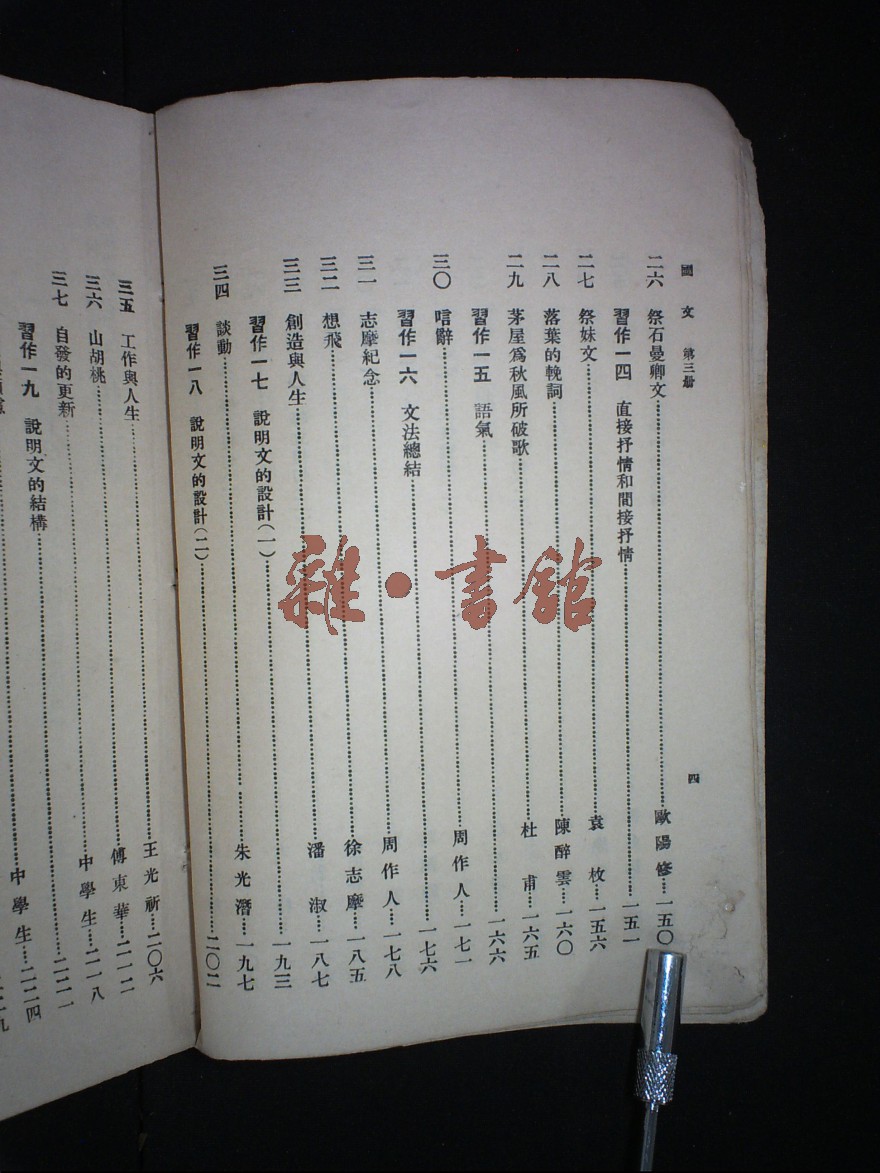 國文 第三册 四
二六 祭石曼卿文……歐陽修…一五〇
習作一四 直接抒情和間接抒情……一五一
二七 祭妹文……袁枚…一五六
二八 落葉的輓詞……陳醉雲…一六〇
二九 茅屋爲秋風所破歌……杜甫…一六五
習作一五 語氣……一六六
三〇 唁辭……周作人…一七一
習作一六 文法總結……一七六
三一 志摩紀念……周作人…一七八
三二 想飛……徐志摩…一八五
三三 創造與人生……潘淑…一八七
習作一七 說明文的設計(一)……一九三
三四 談動……朱光潛…一九七
習作一八 說明文的設計(二)……二〇二
三五 工作與人生……王光祈…二〇六
三六 山胡桃……傅東華…二一二
三七 自發的更新……中學生…二一八
習作一九 說明文的結構……二二一
中學生…二二四
雜·書館